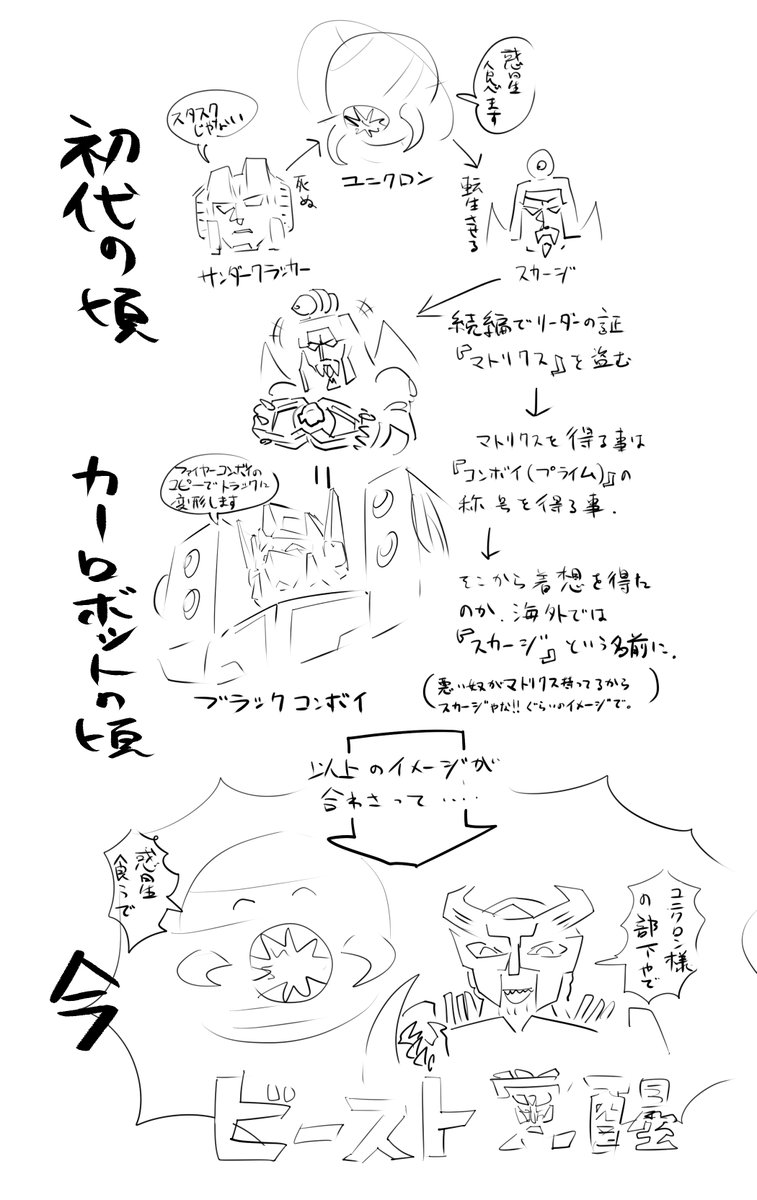 初代の頃
スタスク
じゃない
サンダークラッカー
死ぬ
ユニクロン
惑星
食べます
転生させる
スカージ
続編でリーダーの証
『マトリクス』を盗む
マトリクスを得る事は
『コンボイ(プライム)』の
称号を得る事.
カーロボットの頃
ファイヤーコンボイの
コピーでトラックに
変形します
ブラックコンボイ
そこから着想を得た
のか.海外では
『スカージ』という名前に.
(悪い奴がマトリクス持ってるから
スカージやな!!ぐらいのイメージで。)
以上のイメージが
合わさって・・・・
今
惑星
食うで
ユニクロン様
の部下やで
ビースト覚醒